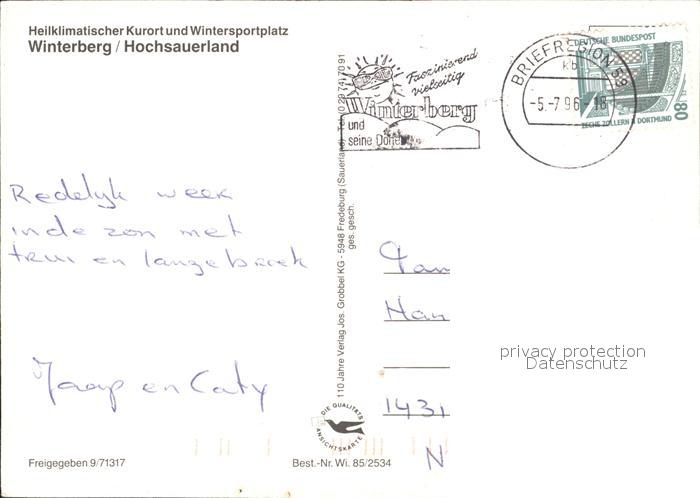 Heilklimatischer Kurort und Wintersportplatz
Winterberg / Hochsauerland
Faszinierend
vielseitig
Winterberg
und
seine Dörfer
Tel. (0 29 74) 70 91
BRIEFREGION 59
kb
-5.-7.96-18
DEUTSCHE BUNDESPOST
80
ZECHE ZOLLERN II DORTMUND
Redelyk week
in de zon met
trui en lange broek
Jaap en Caty
110 Jahre Verlag Jos. Grobbel KG - 5948 Fredeburg (Sauerland)
ges. gesch.
Fam
Han
1431
N
privacy protection
Datenschutz
DIE QUALITÄTS
ANSICHTSKARTE
Freigegeben 9/71317
Best.-Nr. Wi. 85/2534